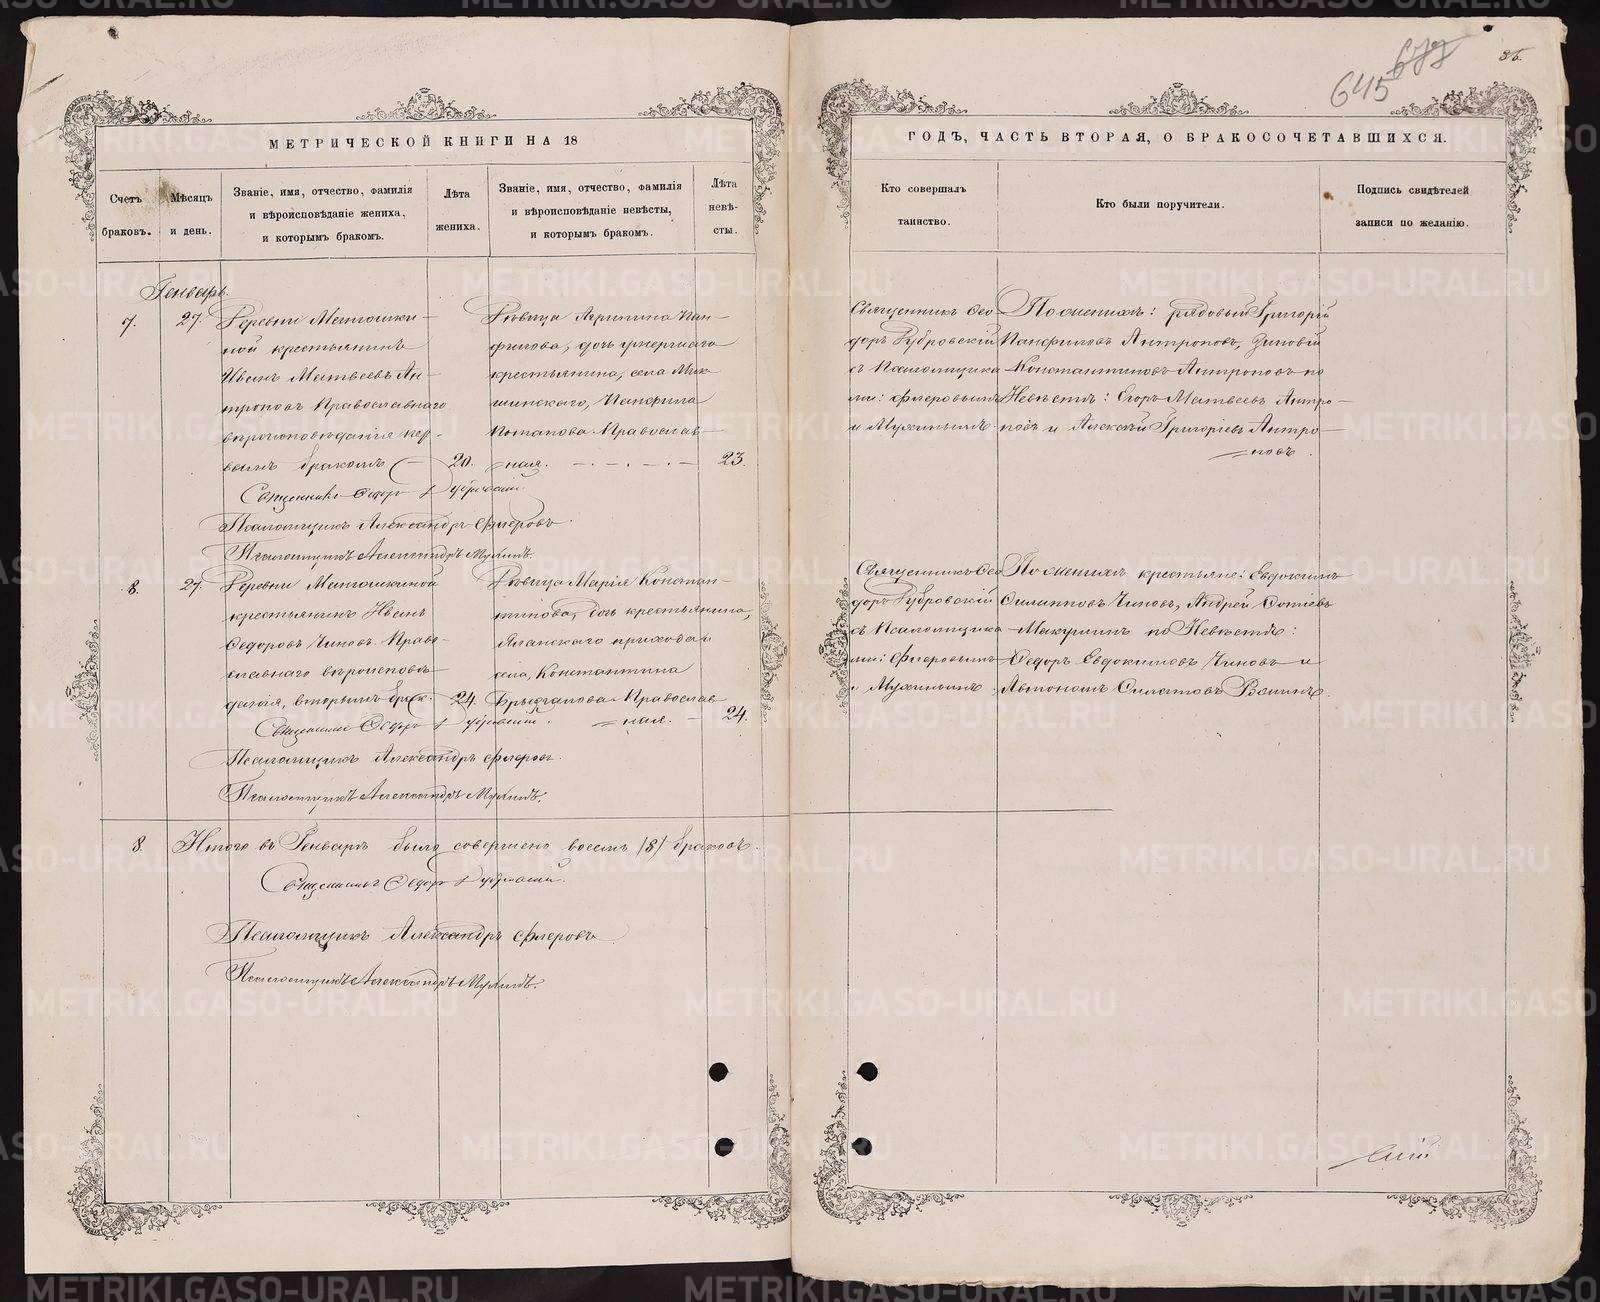 645
677
МЕТРИЧЕСКОЙ КНИГИ НА 18
Счетъ браковъ.
Мѣсяцъ и день.
Званіе, имя, отчество, фамилія
и вѣроисповѣданіе жениха,
и которымъ бракомъ.
Лѣта жениха.
Званіе, имя, отчество, фамилія
и вѣроисповѣданіе невѣсты,
и которымъ бракомъ.
Лѣта невѣ-
сты.
Генварь.
7.
27.
Деревни
ной крестьянинъ
Иванъ Матвеевъ Ан-
троповъ Православнаго
вѣроисповѣданія пер-
вымъ бракомъ
20.
Дѣвица Агрипина Пан-
филова, дочь умершаго
крестьянина, села
Панфила
Потапова Православ-
ная.
23.
Священникъ Федоръ Дубровскій
Псаломщикъ Александръ Флеровъ.
Псаломщикъ Александръ Мухинъ.
8.
27.
Деревни
крестьянинъ Иванъ
Федоровъ Чиновъ Право-
славнаго вѣроисповѣ-
данія, вторымъ брак-
24.
Дѣвица Марія Констан-
тинова, дочь крестьянина,
прихода
села, Константина
Православ
ная.
24.
Священникъ Федоръ Дубровскій.
Псаломщикъ Александръ Флеровъ.
Псаломщикъ Александръ Мухинъ.
8
Итого въ Генварѣ было совершено восемь /8/ браковъ.
Священникъ Федоръ Дубровскій.
Псаломщикъ Александръ Флеровъ
Псаломщикъ Александръ Мухинъ.
ГОДЪ, ЧАСТЬ ВТОРАЯ, О БРАКОСОЧЕТАВШИХСЯ.
Кто совершалъ
таинство.
Кто были поручители.
Подпись свидѣтелей
записи по желанію.
Священникъ Ѳео-
доръ Дубровскій
съ Псаломщика
ми: Флеровымъ
и Мухинымъ
По женихѣ: рядовый Григорій
Панфиловъ Антроповъ, Зиновій
Константиновъ Антроповъ по
Невѣстѣ: Егоръ Матвеевъ Антро-
повъ и Алексѣй Григоріевъ Антро-
повъ
Священникъ Ѳео
доръ Дубровскій
съ Псаломщика
ми: Флеровымъ
и Мухинымъ
По женихѣ крестьяне: Евдокимъ
Филипповъ Чиновъ, Андрей
по Невѣстѣ:
Федоръ Евдокимовъ Чиновъ и
METRIKI.GASO-URAL.RU